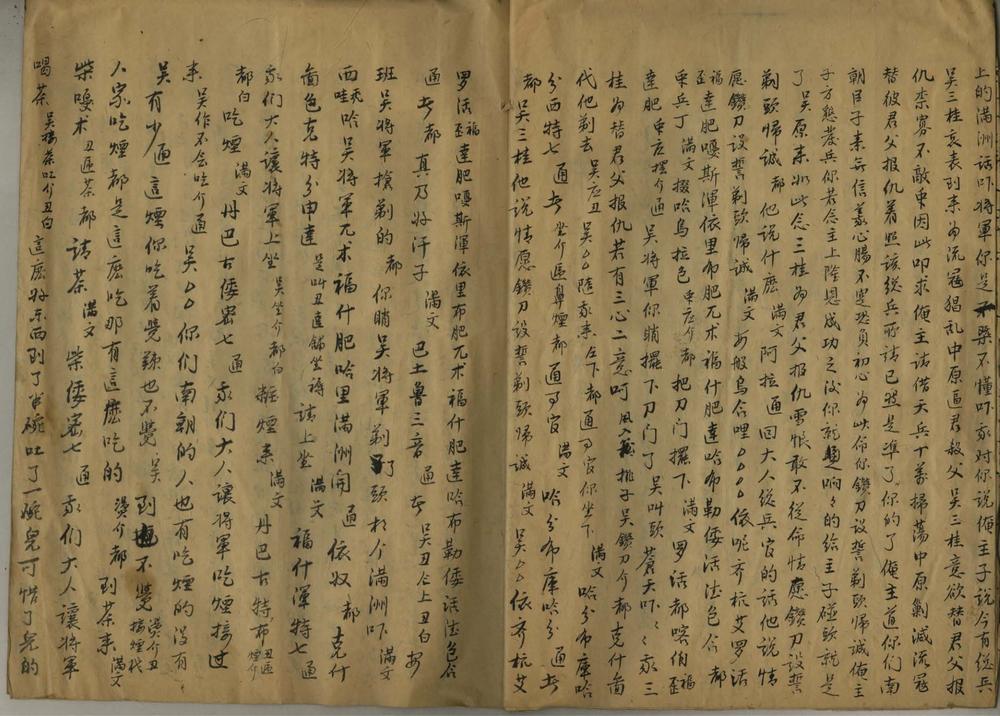 上的满洲话吓将军你是 不懂吓家对你說俺主子說今有從兵
吳三桂哀表到来为流寇猖乱中原逼君殺父吴三桂意欲替君父報
仇柰寡不敵衆因此叩求俺主請借天兵十萬掃荡中原剿滅流寇
替彼君父报仇着照該総兵所請已照是準了你的了俺主道你们南
朝目子来無信義心腸不定恐負初心为此命你鑽刀設誓剃頭帰誠俺主
子方愁發兵你若念主上隆恩成功之後你就 响々的给主子碰頭就是
了吴原来如此念三桂为君父报仇雪恨敢不從命情愿鑽刀設誓
剃頭帰誠 都 他說什庅 满文 阿拉通 回大人総兵官的话他說情
愿鑽刀設誓剃頭帰誠 满文 安般烏合哩 依呢齐杭艾罗活
福歪達肥嘎斯渾依里布肥兀术福什肥達哈布勒倭活法色合 都
衆兵丁 满文 掇哈烏拉色 衆应介 都 把刀门擺下 满文 罗活都喀伯歪福
達肥 衆应擺介 通 吴將軍你睄擺下刀门了 吴叫頭 蒼天吓々 家三
桂为替君父报仇若有三心二意呵 風入 排子吴鑽刀介 都 克什图
代他剃去 吴应丑 吴 随家来 仝下 都 通事官你坐下 满文 哈分布庫哈
分西特七 通 者 坐介逓鼻煙 都 通事官 满文 哈分布庫哈分 通 者
都 吴三桂他說情愿鑽刀設誓剃頭帰誠 满文 吴 依齐杭艾
罗活福歪達肥嘎斯渾依里布肥兀术福什肥達哈布勒倭活法色合
通 者 都 真乃好汗子 满文 巴土魯三音 通 者 吴丑仝上丑白 安
班吴將軍搶剃的 都 你睄吴將軍剃了頭杉个满洲吓 满文
西 哇哈吴將軍兀术福什肥哈里满洲闹 通 依奴 都 克什
图色克特分申達 是叫丑達鋪坐褥 請上坐 满文 福什渾特七 通
家们大人讓將軍上坐 吴坐介都白 粧煙来 满文 丹巴古特布 丑逓煙介
都白 吃煙 满文 丹巴古倭密七 通 家们大人讓將軍吃煙接过
来 吴作不会吃介 通 吴 你们南朝的人也有吃煙的没有
吴 有少 通 這煙你吃着覺辣也不覺 吴 到也不覺 燙介丑接煙代
人家吃煙都是這庅吃那有這庅吃的 燙介 都 到茶来 满文
柴嘎术 丑逓茶 都 請茶 满文 柴倭密七 通 家们大人讓將軍
喝茶 吴 茶吐介丑白 這庅好东西到了 碗吐了一碗兒可惜了兒的